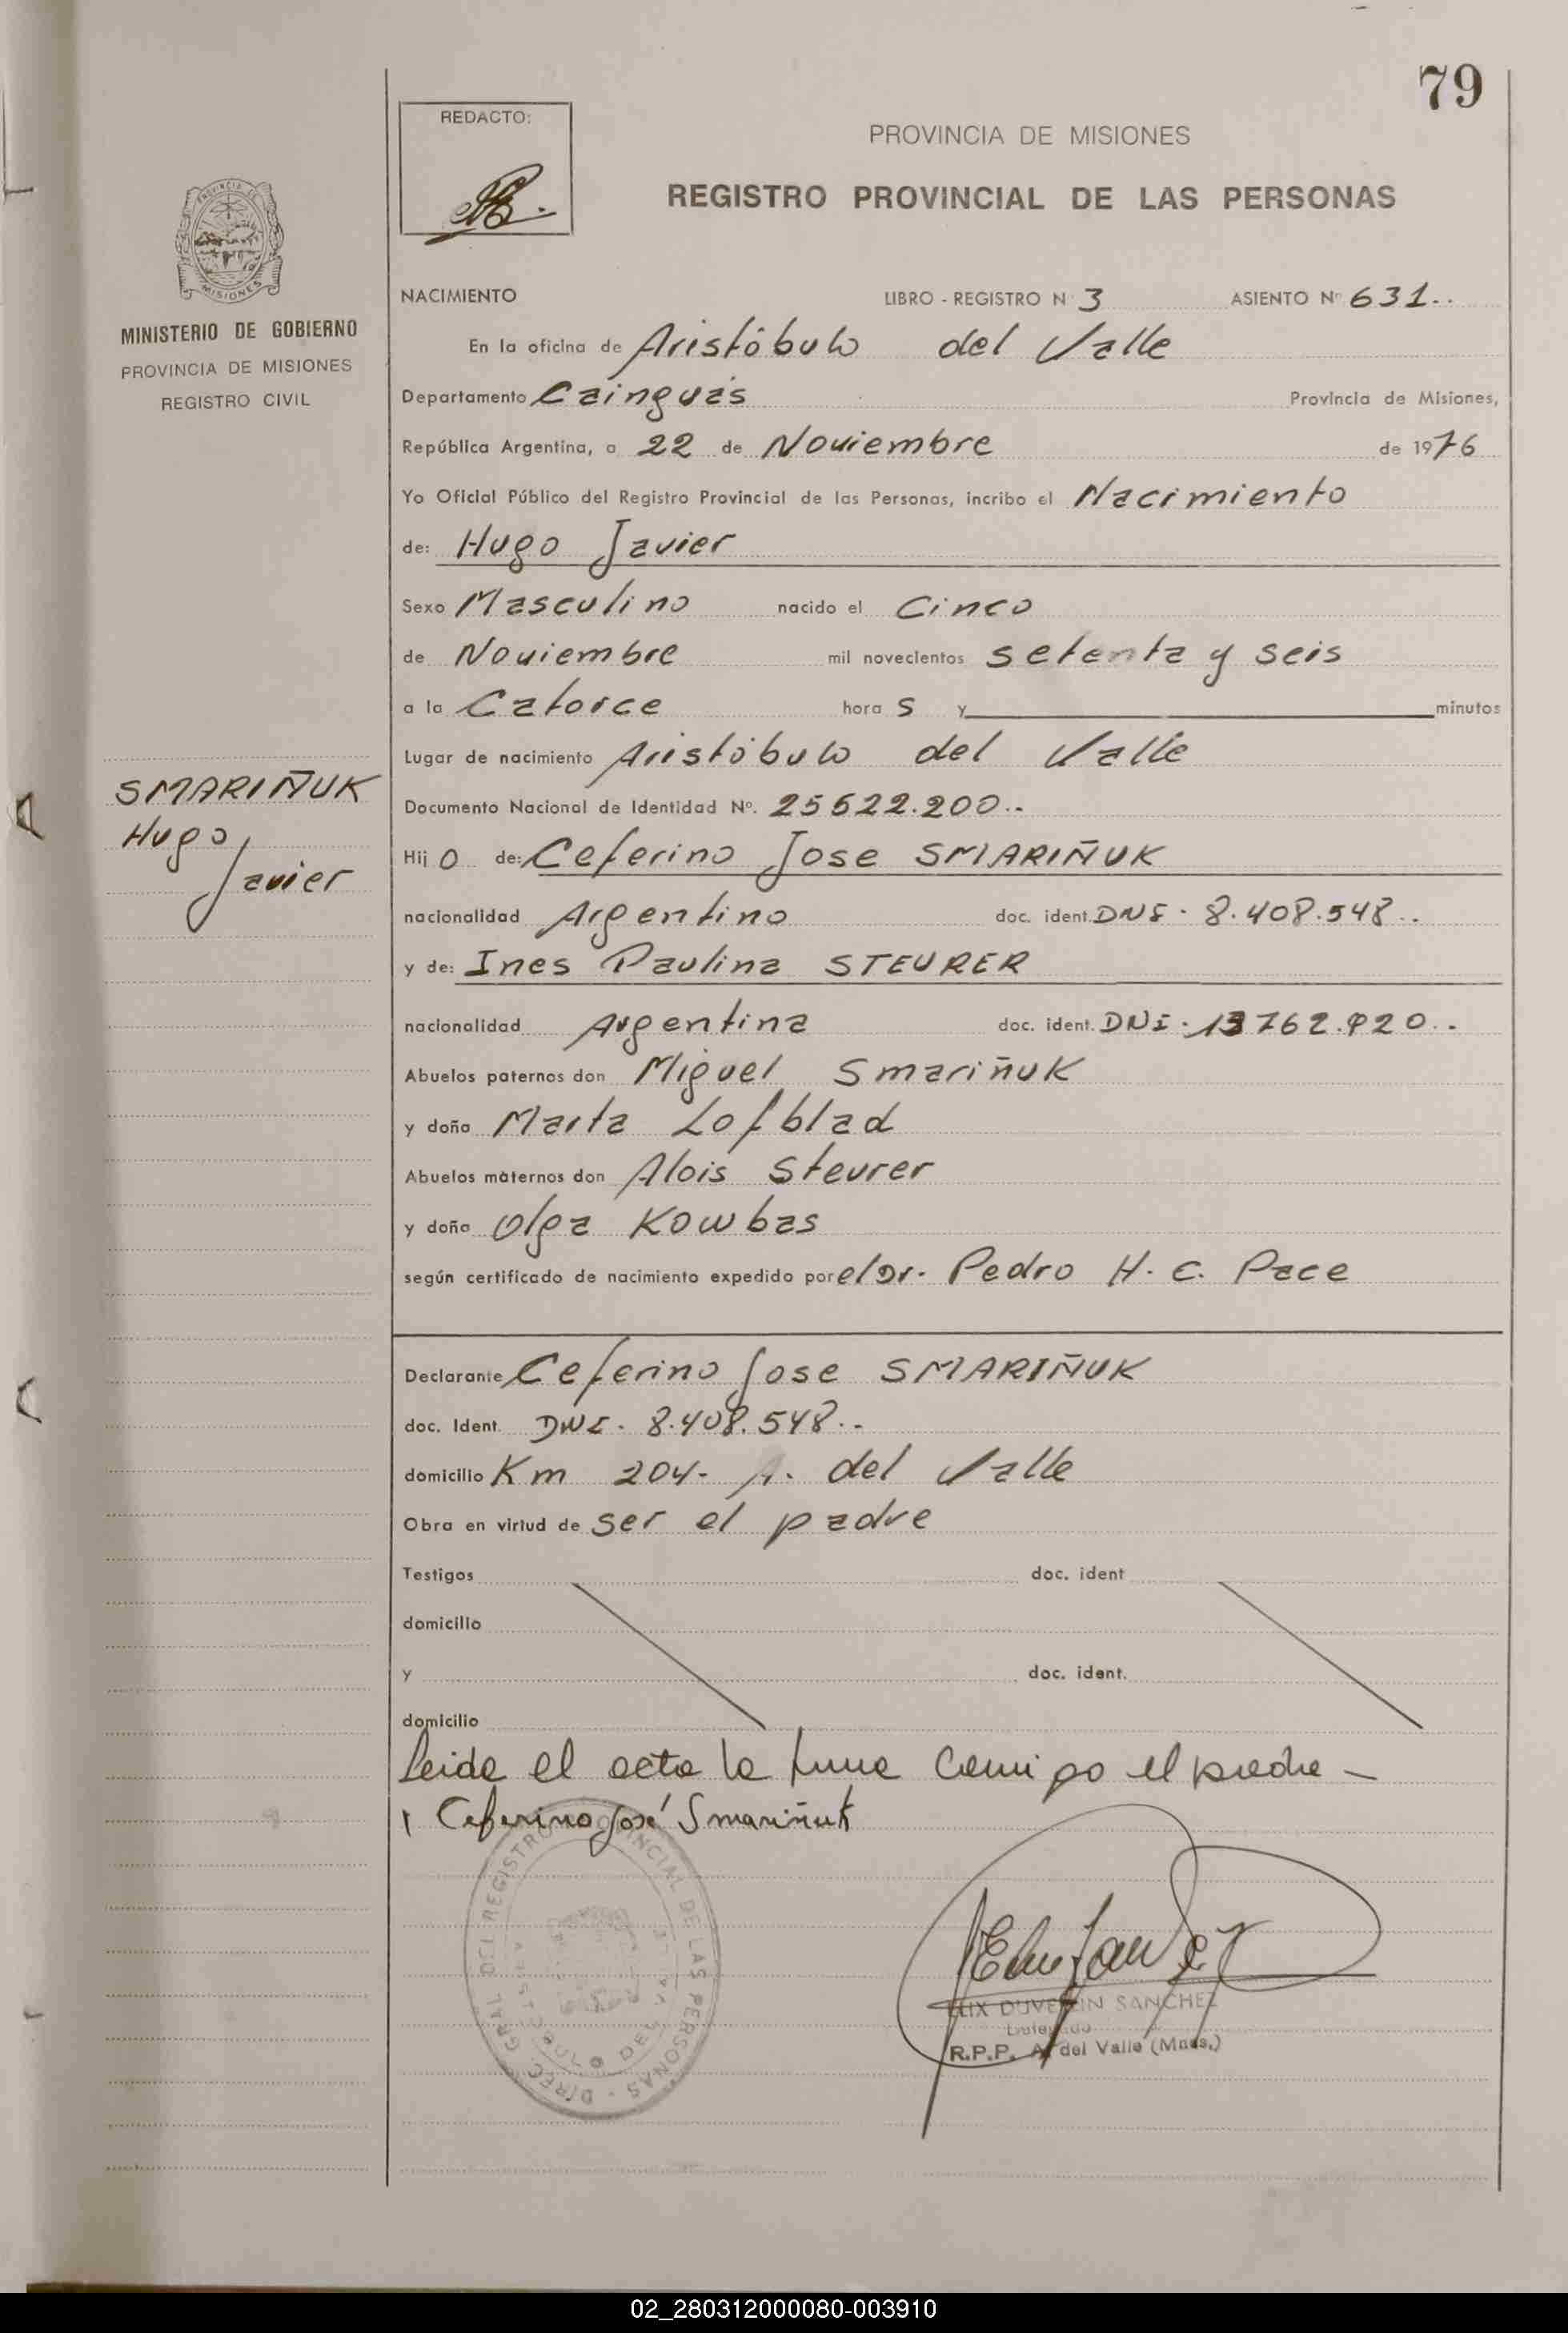 79
REDACTO:
PROVINCIA DE MISIONES
REGISTRO PROVINCIAL DE LAS PERSONAS
PROVINCIA DE
MISIONES
MINISTERIO DE GOBIERNO
PROVINCIA DE MISIONES
REGISTRO CIVIL
NACIMIENTO LIBRO - REGISTRO N 3 ASIENTO Nº 631..
En la oficina de Aristóbulo del Valle
Departamento Cainguás Provincia de Misiones,
República Argentina, a 22 de Noviembre de 1976
Yo Oficial Público del Registro Provincial de las Personas, incribo el Nacimiento
de: Hugo Javier
Sexo Masculino nacido el Cinco
de Noviembre mil novecientos setenta y seis
a la Catorce hora s y minutos
Lugar de nacimiento Aristóbulo del Valle
SMARIÑUK
Hugo
Javier
Documento Nacional de Identidad Nº. 25622.200..
Hij o de: Ceferino Jose SMARIÑUK
nacionalidad Argentino doc. ident. DNI - 8.408.548..
y de: Ines Paulina STEURER
nacionalidad Argentina doc. ident. DNI - 13762.920..
Abuelos paternos don Miguel Smariñuk
y doña Marta Lofblad
Abuelos maternos don Alois Steurer
y doña Olga Kowbas
según certificado de nacimiento expedido por el Dr. Pedro H. C. Pace
Declarante Ceferino Jose SMARIÑUK
doc. Ident. DNI - 8.408.548..
domicilio Km 204- A. del Valle
Obra en virtud de ser el padre
Testigos doc. ident
domicilio
y doc. ident.
domicilio
Leida el acta la firma conmigo el padre -
Ceferino José Smariñuk
DIREC. GRAL. DEL REGISTRO PROVINCIAL DE LAS PERSONAS
SANCHEZ
Delegado
R.P.P. A. del Valle (Mnes.)
02_280312000080-003910